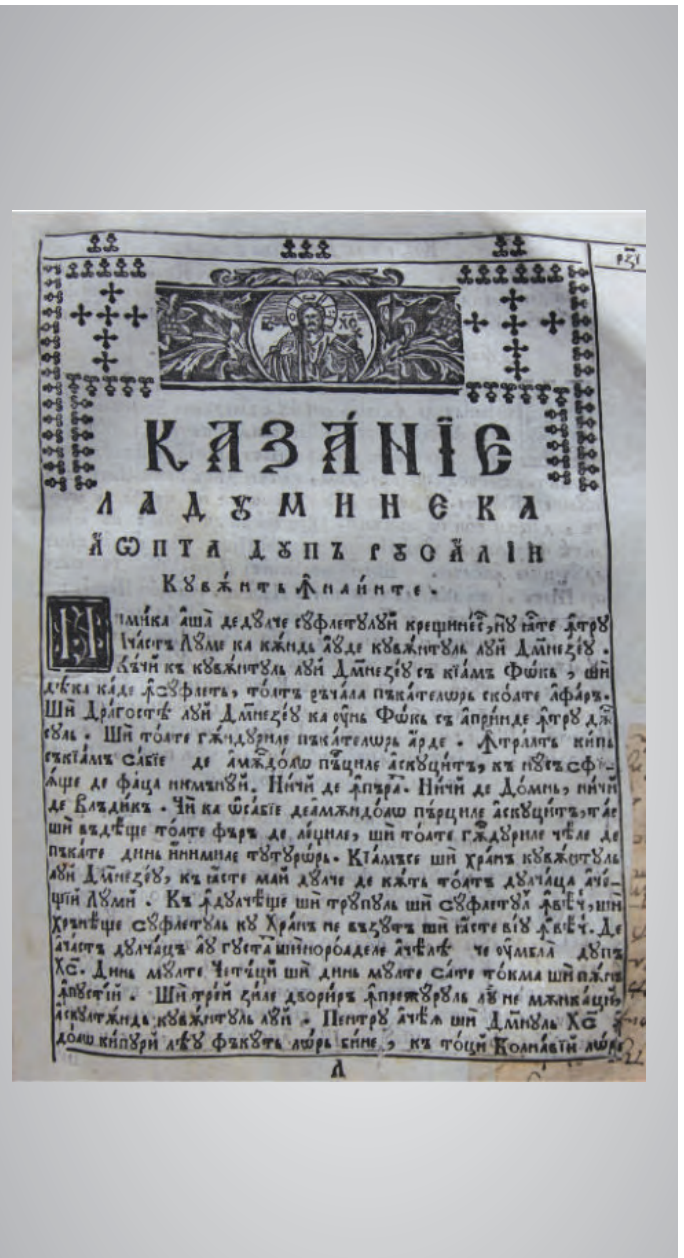 р҃ѯ҃і
І҃С Х҃С
КАЗА́НЇЄ
ЛАДꙊМИНЕКА
А҆ѠПТА ДꙊПЪ РꙊСА́ЛІИ
Кꙋвѫ́нть ꙟ҆наи́нте .
Ни́мика а҆ша̀ де дꙋлче сꙋ́флетꙋлꙋй креши́ней, нꙋ ꙗ҆́сте ꙟ҆тру
А҆ча́стъ Лꙋ́ме ка кѫ́ндь а҆́ꙋде кꙋвѫ́нтꙋль лꙋй Дм҃неꙁе́ꙋ .
Къ́чи къ кꙋвѫ́нтꙋль лꙋй Дм҃неꙁе́ꙋ съ кїа́мъ Фѡ́кь , ши
дѣ́ка ка́де ꙟ҆сꙋ́флеть, то́атъ ръча́ла пъка́телѡрь ско́ате а҆фа́ръ.
Ши Дра́гостѣ лꙋй Дм҃неꙁе́ꙋ ка ᲂу҆́нь Фѡ́кь съ а҆при́нде ꙟ҆тру дн҃
сꙋль . Ши то́ате гѫ́ндꙋриле пъка́телѡрь а҆́рде . Ꙟ҆тра́лть ки́пь
съкїа́мъ са́бїе де а҆мѫ́ндо́аѡ пъ́рциле а҆скꙋци́тъ, къ нꙋ съ сфї–
ꙗ҆́ще де фа́ца ни́мънꙋй. Ни́чи де ꙟ҆пъра́т. Ни́чи де До́мнь, ни́чи
де Влъди́кь . Чи ка ѡ҆са́бїе деа҆мѫндо́аѡ пъ́рциле а҆скꙋци́тъ, та́е
ши въдѣ́ще то́ате фъръ̀ де ле́ꙋиле, ши то́ате гѫ́ндꙋриле чѣ́ле де
пъка́те динь и҆́нимиле тꙋтꙋрѡ́рь. Кїа́мъсе ши хра́нъ кꙋвѫ́нтꙋль
лꙋй Дм҃неꙁе́ꙋ, къ ꙗ҆́сте май дꙋ́лче де кѫ́ть то́атъ дꙋлча́ца а҆че́–
щїй Лꙋ́ми . Къ ꙟ҆дꙋлчѣ́ще ши трꙋ́пꙋль ши сꙋ́флетꙋл ꙟ҆вѣ́чй, ши
хрънѣ́ще сꙋ́флетꙋль кꙋ Хра́нъ не въꙁꙋ́тъ ши ꙗ҆́сте ві́ꙋ ꙟ҆вѣ́чй. Де
а҆ча́стъ дꙋлча́цъ аꙋ гꙋста́т ши норо́аделе а҆чѣ́лѣ че ᲂу҆мбла̀ дꙋпъ
Хс҃. Динь мꙋ́лте Четъ́ций ши динь мꙋ́лте са́те то́кма ши пѫ́нъ
ꙟ҆пꙋсті́й . Ши трей ꙁи́ле дворі́ръ ꙟ҆прежꙋ́рꙋль лꙋй не мѫнка́ций,
а҆скꙋлтѫ́ндь кꙋвѫ́нтꙋль лꙋй . Пе́нтрꙋ а҆че́ꙗ ши Дм҃нꙋль Хс҃
до́аѡ ки́пꙋри лѣ́ꙋ фъкꙋ́ть лѡрь би́не , къ то́ци Болна́вїй лѡ́рь
А